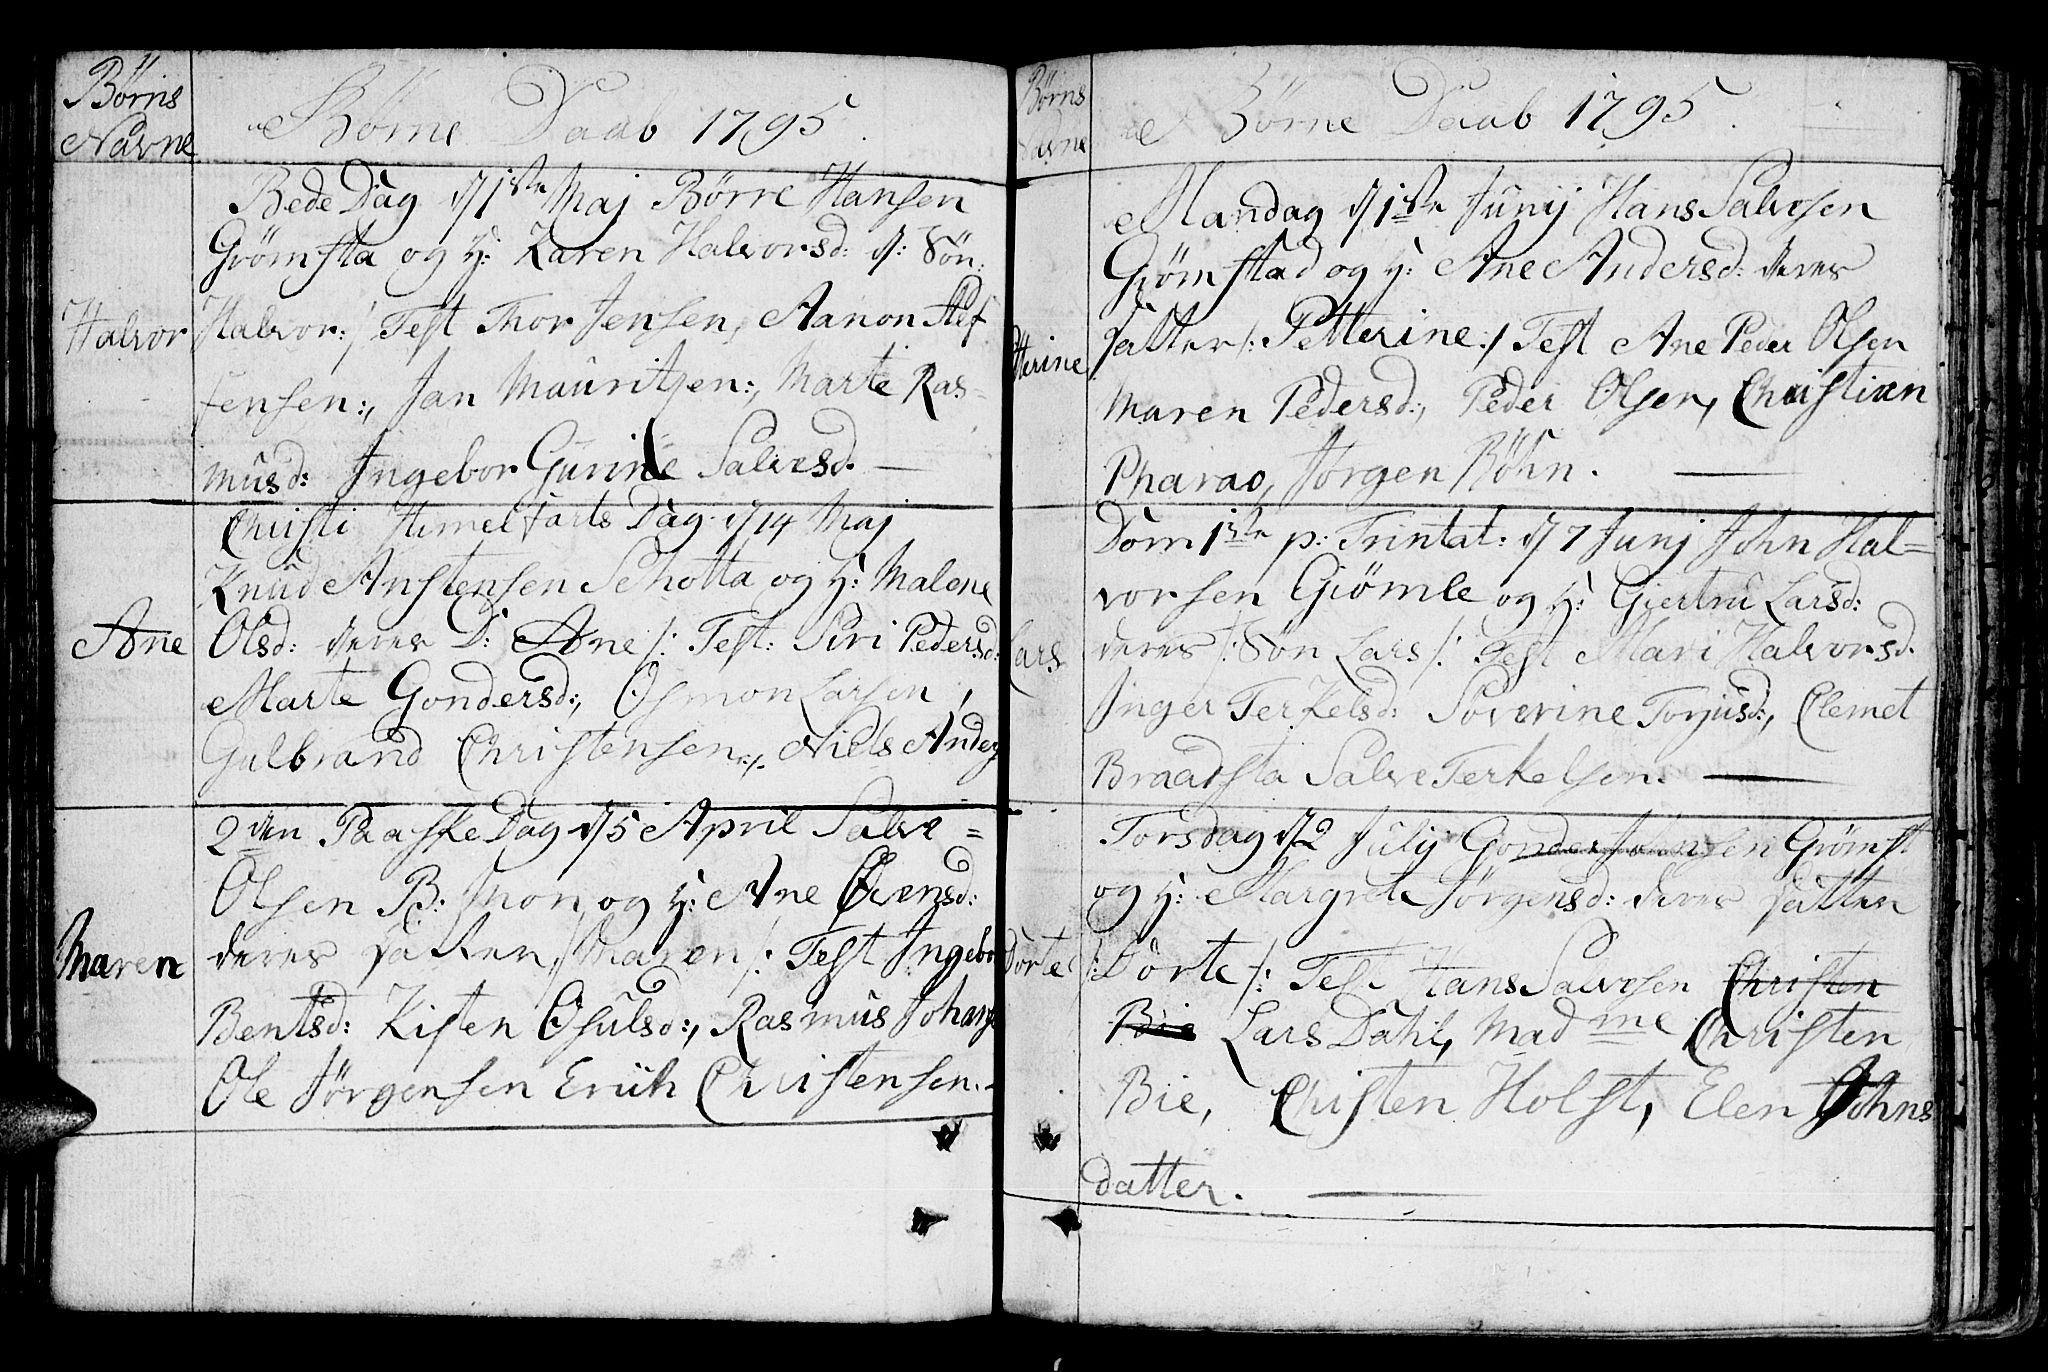 Børns
Navne
Børne Daab 1795.
Bede Dag d 1ste Maj Børre Hansen
Grømsta og H: Karen Halvorsd: d: Søn:
Halvor
Halvor:/ Test Thor Jensen, Aanon Stef
fensen:, Jan Mauritzen:, Marte Ras-
musd: Ingebor Gurine Salvesd.
Christi Himelfarts Dag d 14 Maj
Knud Anstensen Schotta og H: Malene
Ane
Olsd: deres D: Ane /: Test: Siri Pedersd:
Marte Gondersd:, Osmon Larsen,
Gulbrand Christensen:, Niels Anders
2den Paaske Dag d 5 April Salve =
Olsen B: og H: Ane Evensd:
Maren
deres datter /: Maren /: Test Ingebor
Bentsd: Kisten Osulsd:, Rasmus Johans
Ole Jörgensen Erich Christensen.-
Børns
Navne
Børne Daab 1795.
Mandag d 1ste Junij Hans Salvesen
Grömstad og H: Ane Andersd: deres
tterine
datter /: Petterine:/ Test Ane Peder Olsen
Maren Pedersd:, Peder Olsen, Christian
Pharao, Jörgen Böhn.
Dom 1ste p: Trintat: d 7 Junj John Hal=
vorsen Giömle og H: Giertru Larsd:
Lars
deres /: Søn Lars /: Test Mari Halvorsd.
Inger Terkelsd: Soverine Torjusd:, Clemet
Braadsta Salve Terkelsen.
Torsdag d 2 Julij Gonder Jensen Grömst
og H: Margrete Jörgensd: deres datter
Dorte
/: Dörte /: Test Hans Salvesen Christen
Bie Lars Dahl, Madme Christen
Bie, Christen Holst, Elen Johns
datter.